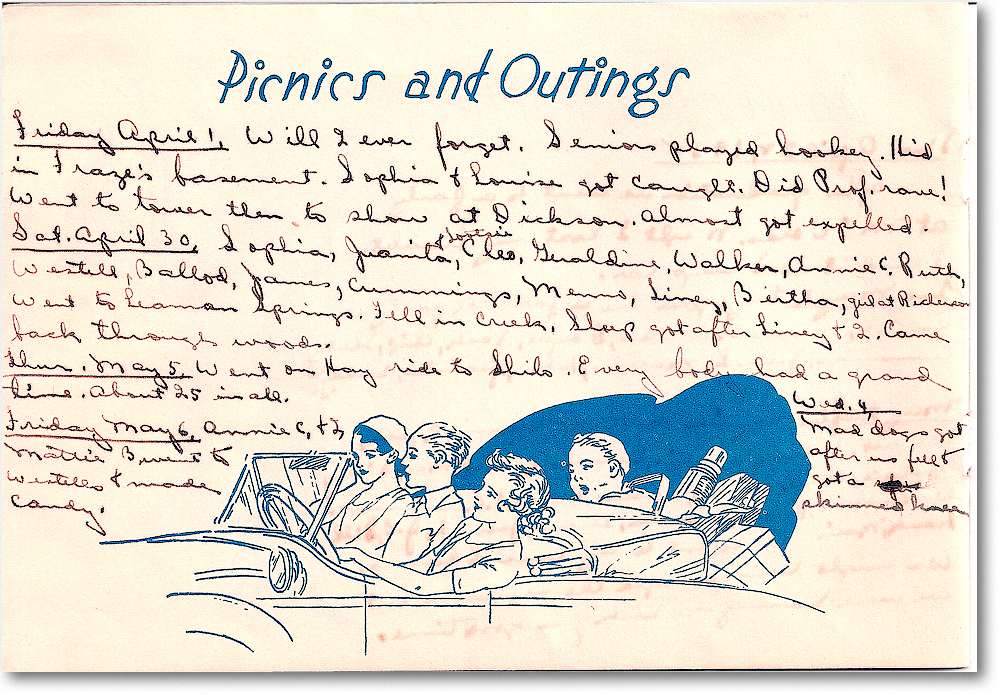 Picnics and Outings
Friday April 1, Will I ever forget. Seniors played hookey. Hid
in Fraze's basement. Sophia & Louise got caught. Did Prof. rave!
Went to tower then to show at Dickson. Almost got expelled.
Sat. April 30, Sophia, Juanita, & Tootsie Cleo, Geraldine, Walker, Annie C. Ruth,
Westell, Ballod, James, Cummings, Menno, Liney, Bertha, girl at Dickerson
Went to Leaman Springs. Fell in Creek. Sheep got after Liney & I. Came
back through woods.
Thur. May 5, Went on Hay ride to Shilo. Every body had a grand
time. About 25 in all.
Friday May 6, Annie C, & I,
Mattie B went to
Westells & made
Candy.
Wed. 4,
Mad dogs got
after us fell &
got a
skinned knee